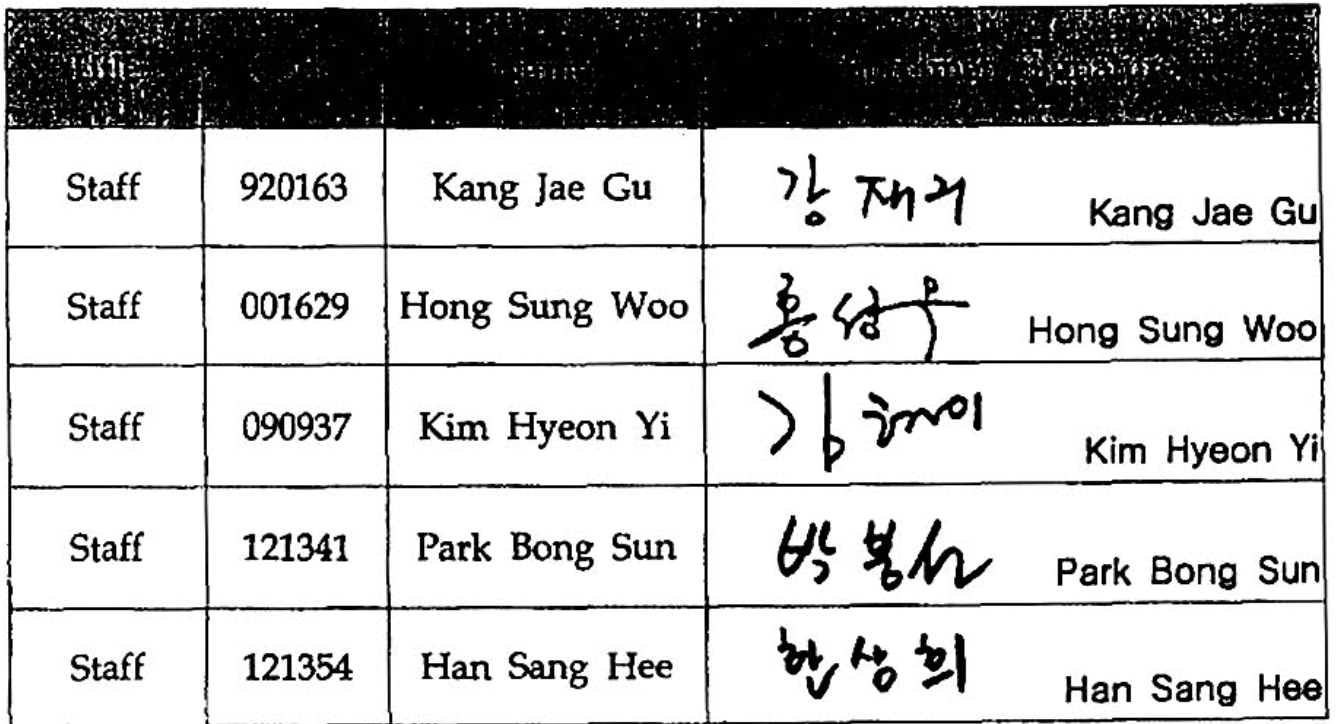 Staff 920163 Kang Jae Gu 강재구 Kang Jae Gu
Staff 001629 Hong Sung Woo 홍성우 Hong Sung Woo
Staff 090937 Kim Hyeon Yi 김현이 Kim Hyeon Yi
Staff 121341 Park Bong Sun 박봉선 Park Bong Sun
Staff 121354 Han Sang Hee 한상희 Han Sang Hee